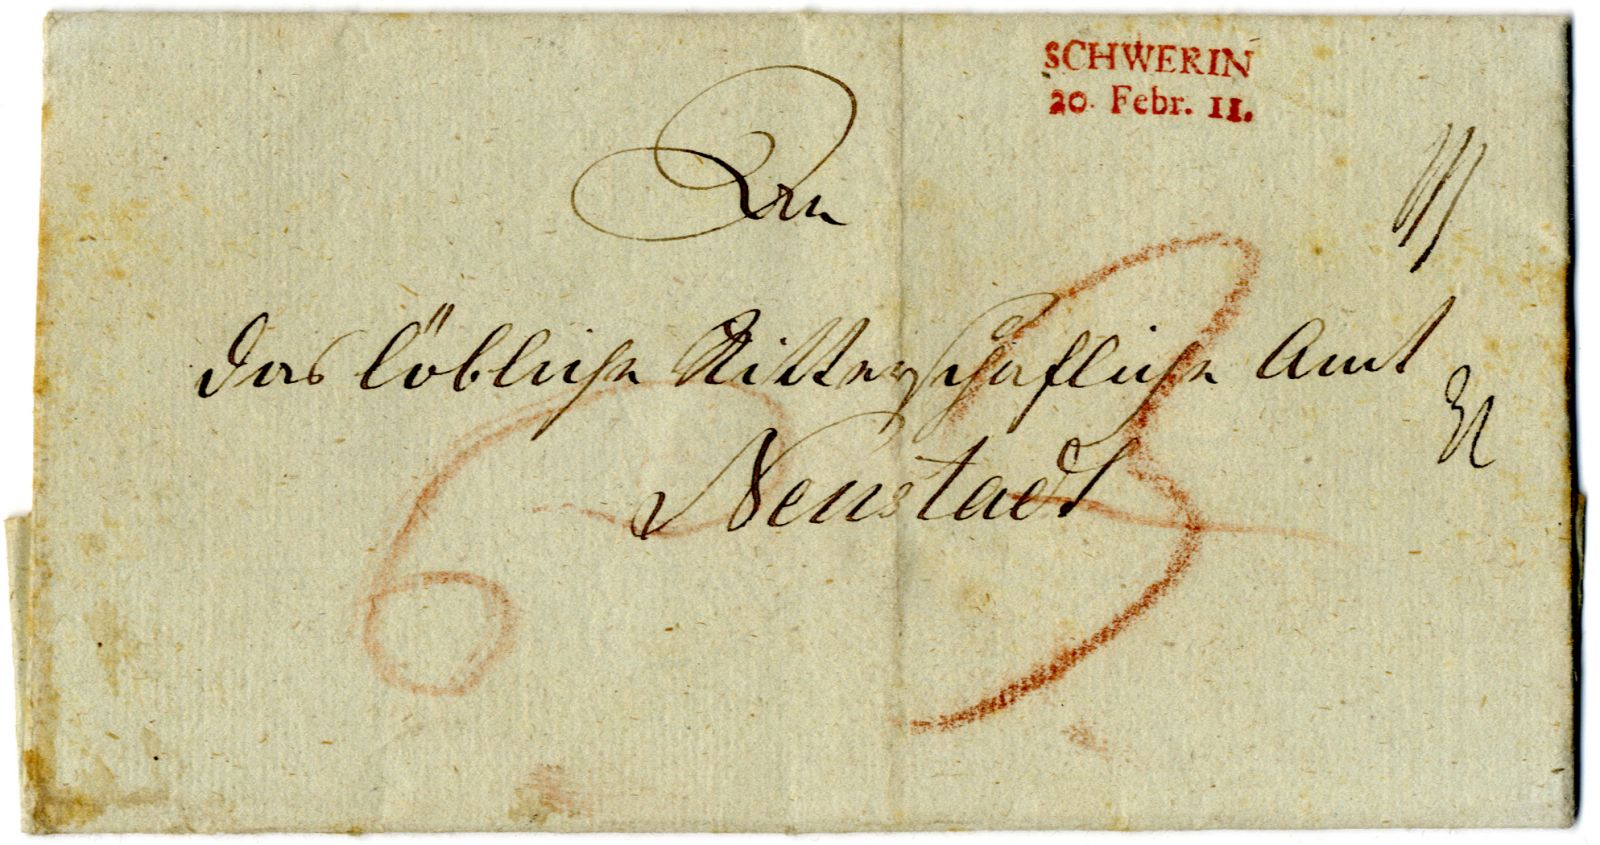 SCHWERIN
20. Febr. 11.
An
das löbliche Ritterschaftliche Amt
Neustadt